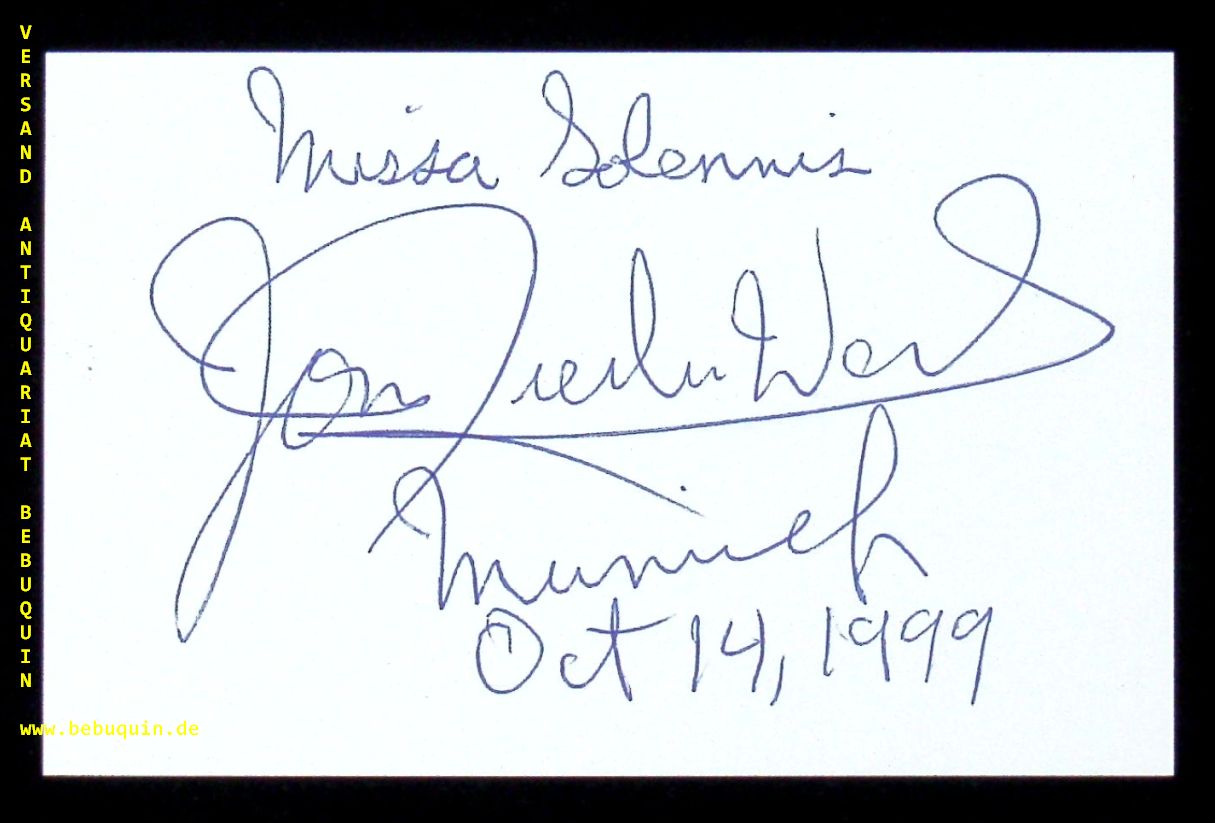 Missa Solennis
Jon
Munich
Oct 14, 1999
VERSAND ANTIQUARIAT BEBUQUIN
www.bebuquin.de